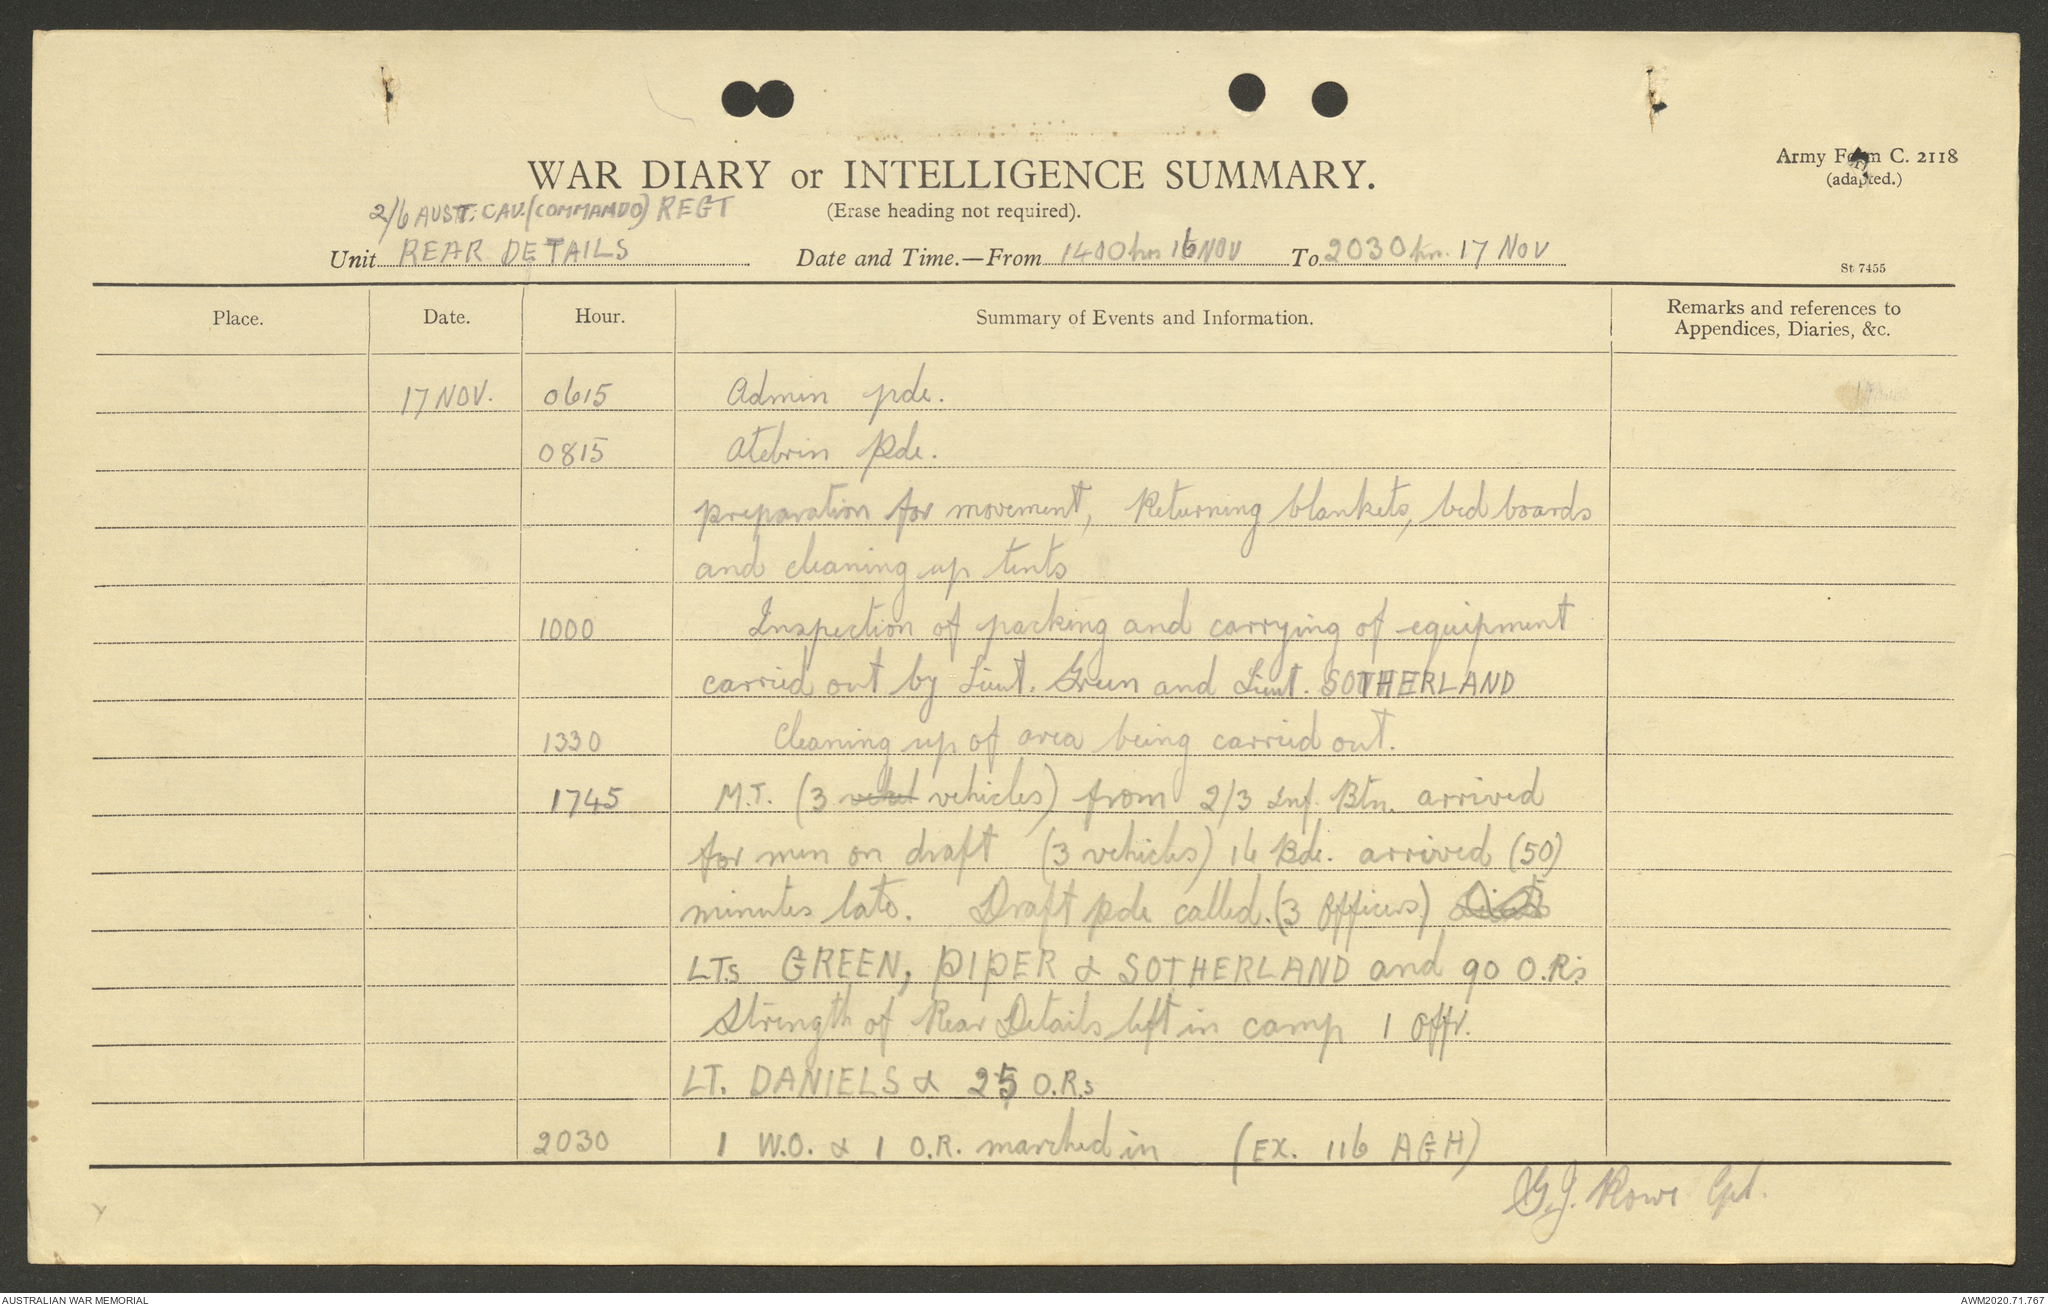 WAR DIARY or INTELLIGENCE SUMMARY.
Army Form C. 2118
(adapted.)
(Erase heading not required).
2/6 AUST. CAV. (COMMANDO) REGT
Unit REAR DETAILS Date and Time.—From 1400 hrs 16 NOV To 2030 hrs. 17 NOV
St 7455
Place. Date. Hour. Summary of Events and Information. Remarks and references to
Appendices, Diaries, &c.
17 NOV. 0615 Admin pde.
0815 Atebrin Pde.
preparation for movement, Returning blankets, bed boards
and cleaning up tents
1000 Inspection of packing and carrying of equipment
carried out by Lieut. Green and Lieut. SOTHERLAND
1330 Cleaning up of area being carried out.
1745 M.T. (3 vehicles) from 2/3 Inf. Btn. arrived
for men on draft (3 vehicles) 16 Bde. arrived (50)
minutes late. Draft pde called. (3 Officers)
LTs GREEN, PIPER & SOTHERLAND and 90 O.R's
Strength of Rear Details left in camp 1 Offr.
LT. DANIELS & 25 O.R.s
2030 1 W.O. & 1 O.R. marched in (EX. 116 AGH)
G.J. Rowe Cpl.
AUSTRALIAN WAR MEMORIAL
AWM2020.71.767